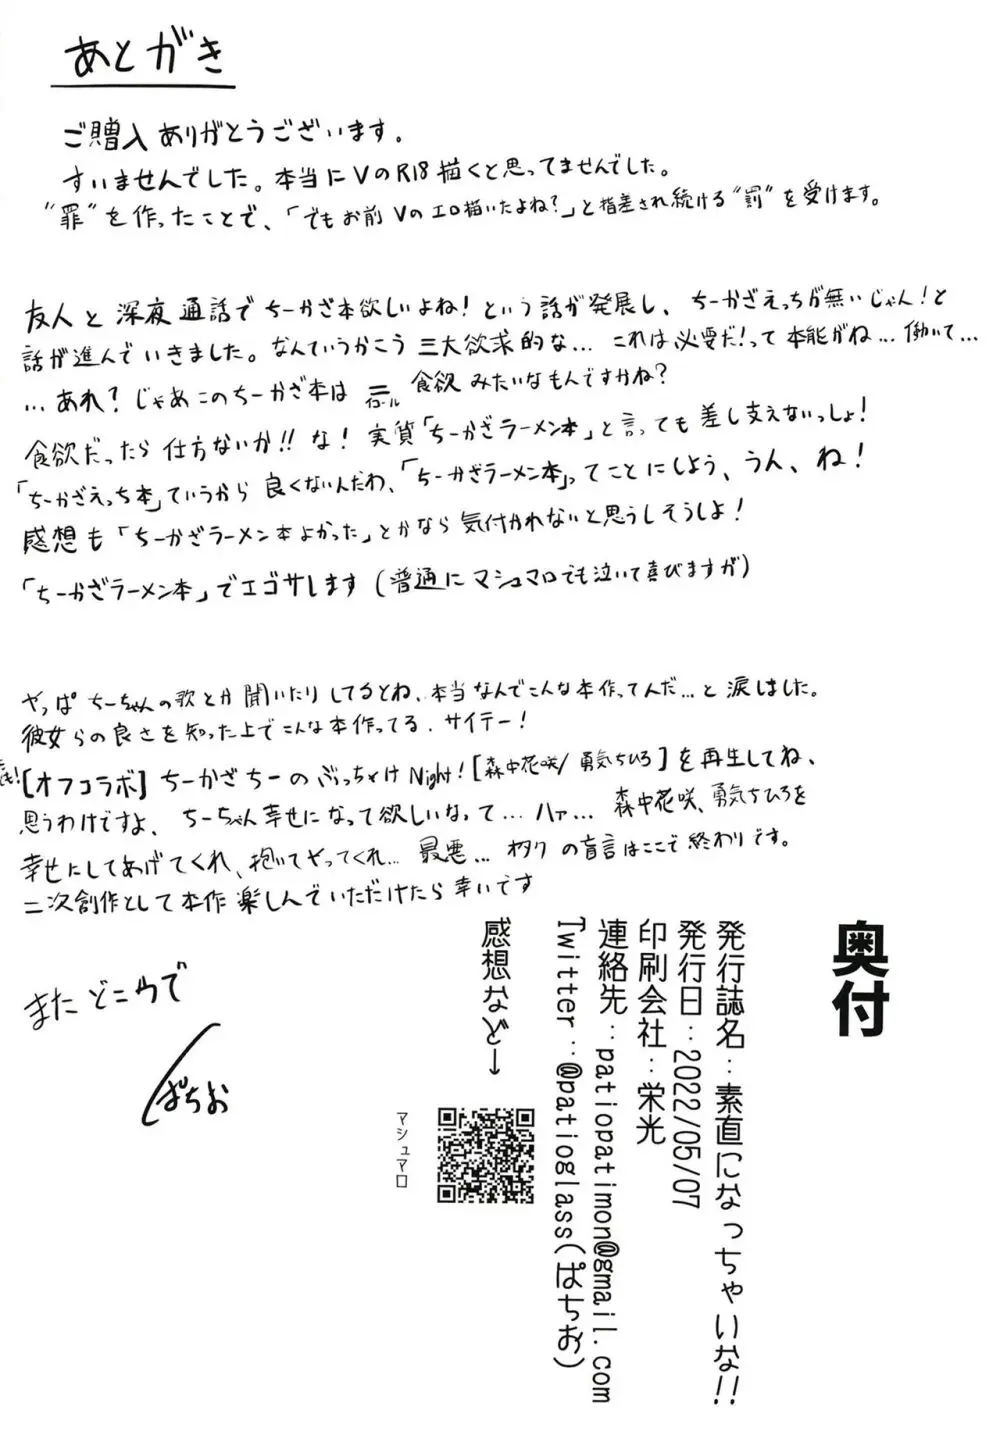 あとがき
ご贈入ありがとうございます。
すいませんでした。本当にVのR18描くと思ってませんでした。
"罪"を作ったことで、「でもお前Vのエロ描いたよね?」と指差され続ける"罰"を受けます。
友人と深夜通話でちーかざ本欲しいよね!という話が発展し、ちーかざえっちが無いじゃん!と
話が進んでいきました。なんていうかこう三大欲求的な...これは必要だ!って本能がね...働いて...
...あれ?じゃあこのちーかざ本は=イコール食欲みたいなもんですかね?
食欲だったら仕方ないか!!な!実質「ちーかざラーメン本」と言っても差し支えないっしょ!
「ちーかざえっち本」ていうから良くないんだわ、「ちーかざラーメン本」ってことにしよう、うん、ね!
感想も「ちーかざラーメン本よかった」とかなら気付かれないと思うしそうしよ!
「ちーかざラーメン本」でエゴサします(普通にマシュマロでも泣いて喜びますが)
やっぱちーちゃんの歌とか聞いたりしてるとね、本当なんでこんな本作ってんだ...と涙しました。
彼女らの良さを知った上でこんな本作ってる.サイテー!
[オフコラボ]ちーかざちーのぶっちゃけNight![森中花咲/勇気ちひろ]を再生してね、
思うわけですよ、ちーちゃん幸せになって欲しいなって...ハァ...森中花咲、勇気ちひろを
幸せにしてあげてくれ、抱いてやってくれ...最悪...オタクの盲言はここで終わりです。
二次創作として本作楽しんでいただけたら幸いです
またどこかで
ぱちお
奥付
発行誌名:素直になっちゃいな!!
発行日:2022/05/07
印刷会社:栄光
連絡先:patiopatimon@gmail.com
Twitter:@patioglass(ぱちお)
感想など→
マシュマロ